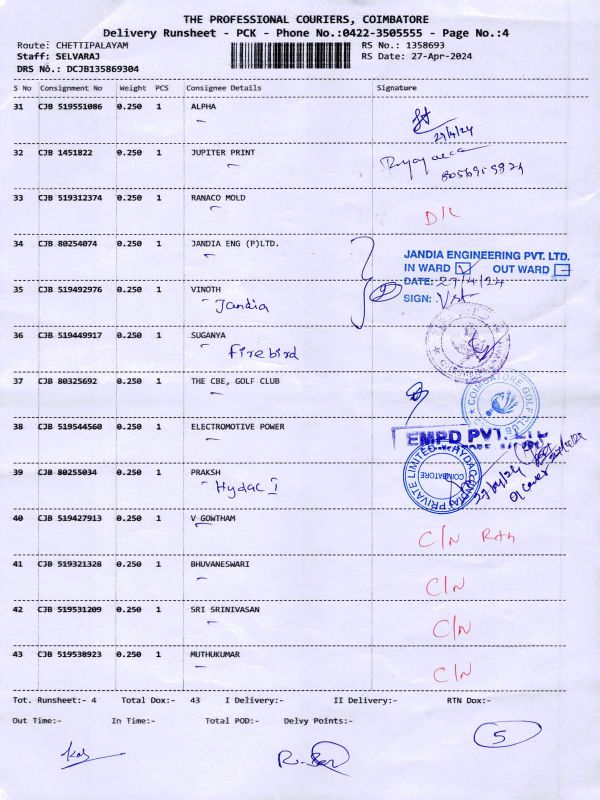 THE PROFESSIONAL COURIERS, COIMBATORE
Delivery Runsheet - PCK - Phone No.:0422-3505555 - Page No.:4
Route: CHETTIPALAYAM RS No.: 1358693
Staff: SELVARAJ RS Date: 27-Apr-2024
DRS No.: DCJB135869304
S No Consignment No Weight PCS Consignee Details Signature
31 CJB 519551086 0.250 1 ALPHA
27/4/24
32 CJB 1451822 0.250 1 JUPITER PRINT
33 CJB 519312374 0.250 1 RANACO MOLD
D/L
34 CJB 80254074 0.250 1 JANDIA ENG (P)LTD.
JANDIA ENGINEERING PVT. LTD.
IN WARD OUT WARD
DATE: 27/4/24
SIGN:
35 CJB 519492976 0.250 1 VINOTH
Jandia
36 CJB 519449917 0.250 1 SUGANYA
Firebird
37 CJB 80325692 0.250 1 THE CBE, GOLF CLUB
COIMBATORE GOLF CLUB
38 CJB 519544560 0.250 1 ELECTROMOTIVE POWER
EMPD PVT. LTD
39 CJB 80255034 0.250 1 PRAKSH
Hydac I
COIMBATORE
27/04/24
40 CJB 519427913 0.250 1 V GOWTHAM
C/N
41 CJB 519321328 0.250 1 BHUVANESWARI
C/N
42 CJB 519531209 0.250 1 SRI SRINIVASAN
C/N
43 CJB 519538923 0.250 1 MUTHUKUMAR
C/N
Tot. Runsheet:- 4 Total Dox:- 43 I Delivery:- II Delivery:- RTN Dox:-
Out Time:- In Time:- Total POD:- Delvy Points:-
5